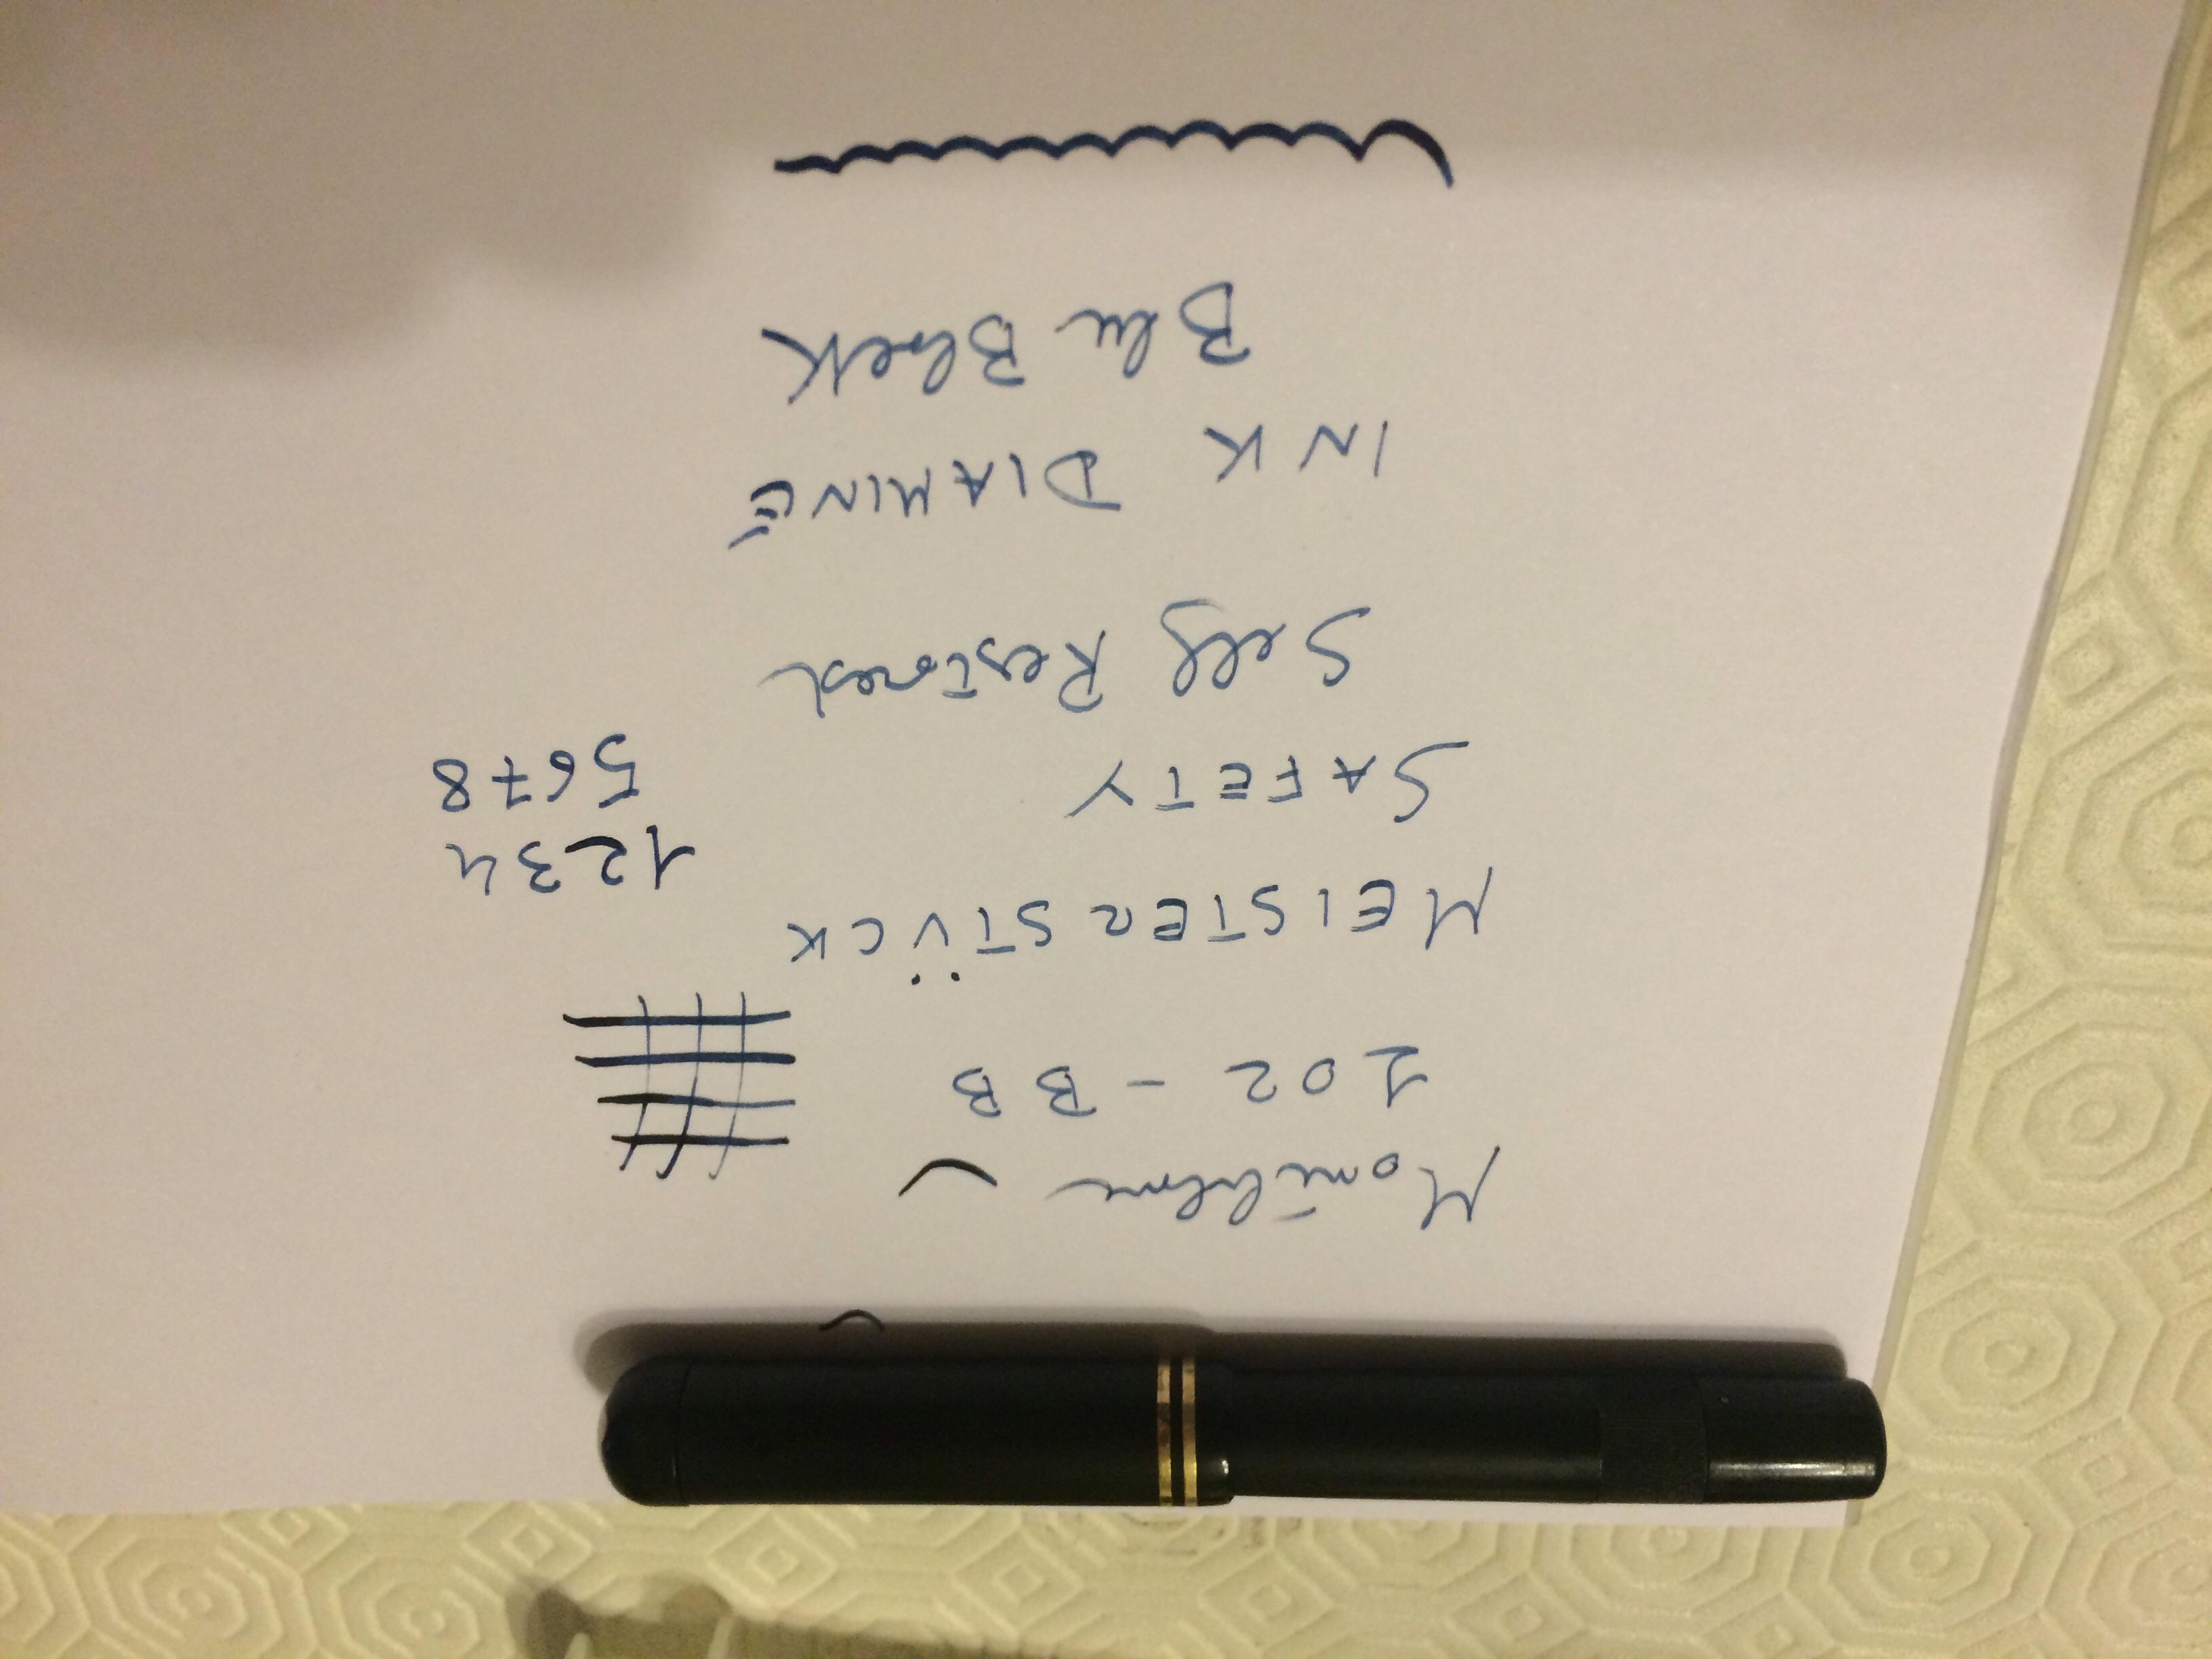 Montblanc
102 - BB
MEISTERSTÜCK
SAFETY
1234
5678
Self Restored
INK DIAMINE
Blu Black